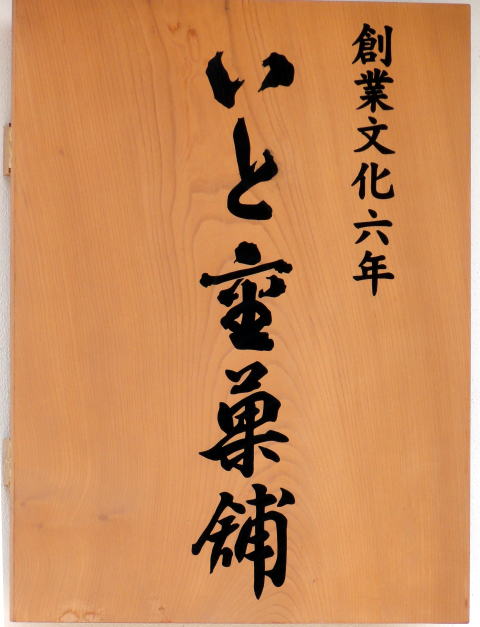 創業文化六年
いと重菓舗